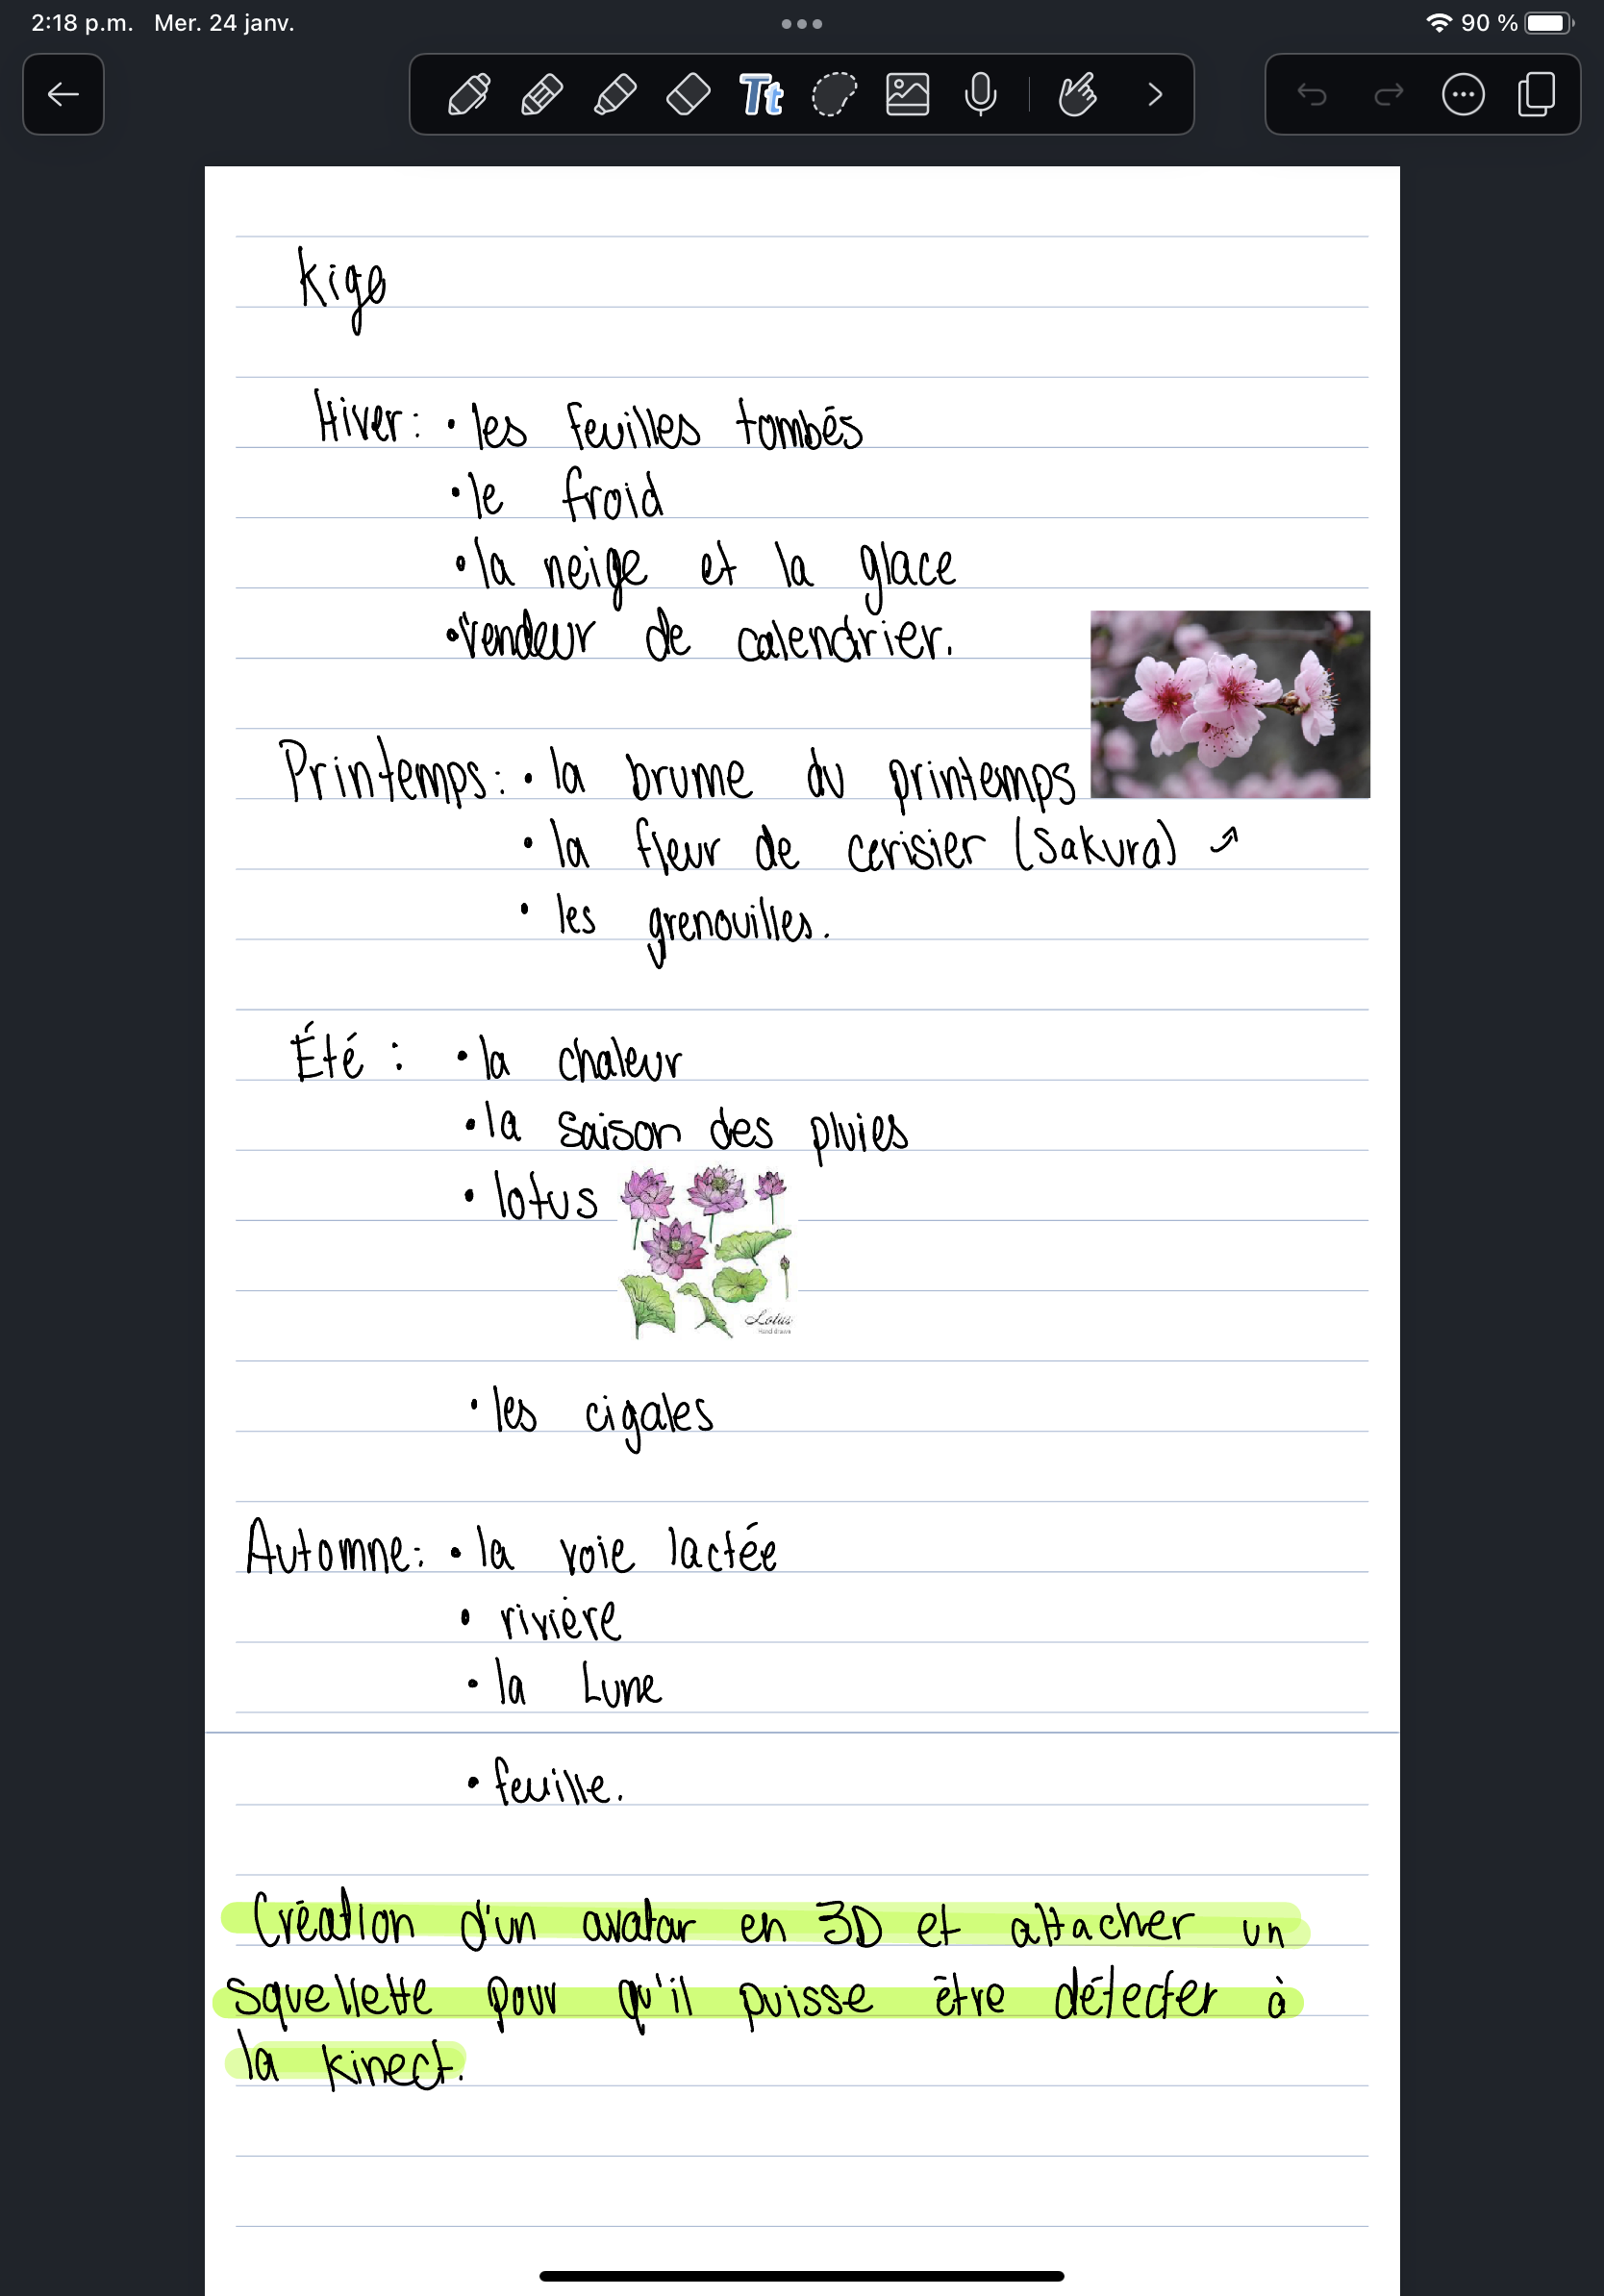 2:18 p.m. Mer. 24 janv.
90 %
Tt
kigo
Hiver: • les feuilles tombés
• le froid
• la neige et la glace
• vendeur de calendrier.
Printemps: • la brume du printemps
• la fleur de cerisier (Sakura)
• les grenouilles.
Été : • la chaleur
• la saison des pluies
• lotus
Lotus
Hand drawn
• les cigales
Automne: • la voie lactée
• rivière
• la Lune
• feuille.
Création d'un avatar en 3D et attacher un
squellette pour qu'il puisse être détecter à
la kinect.